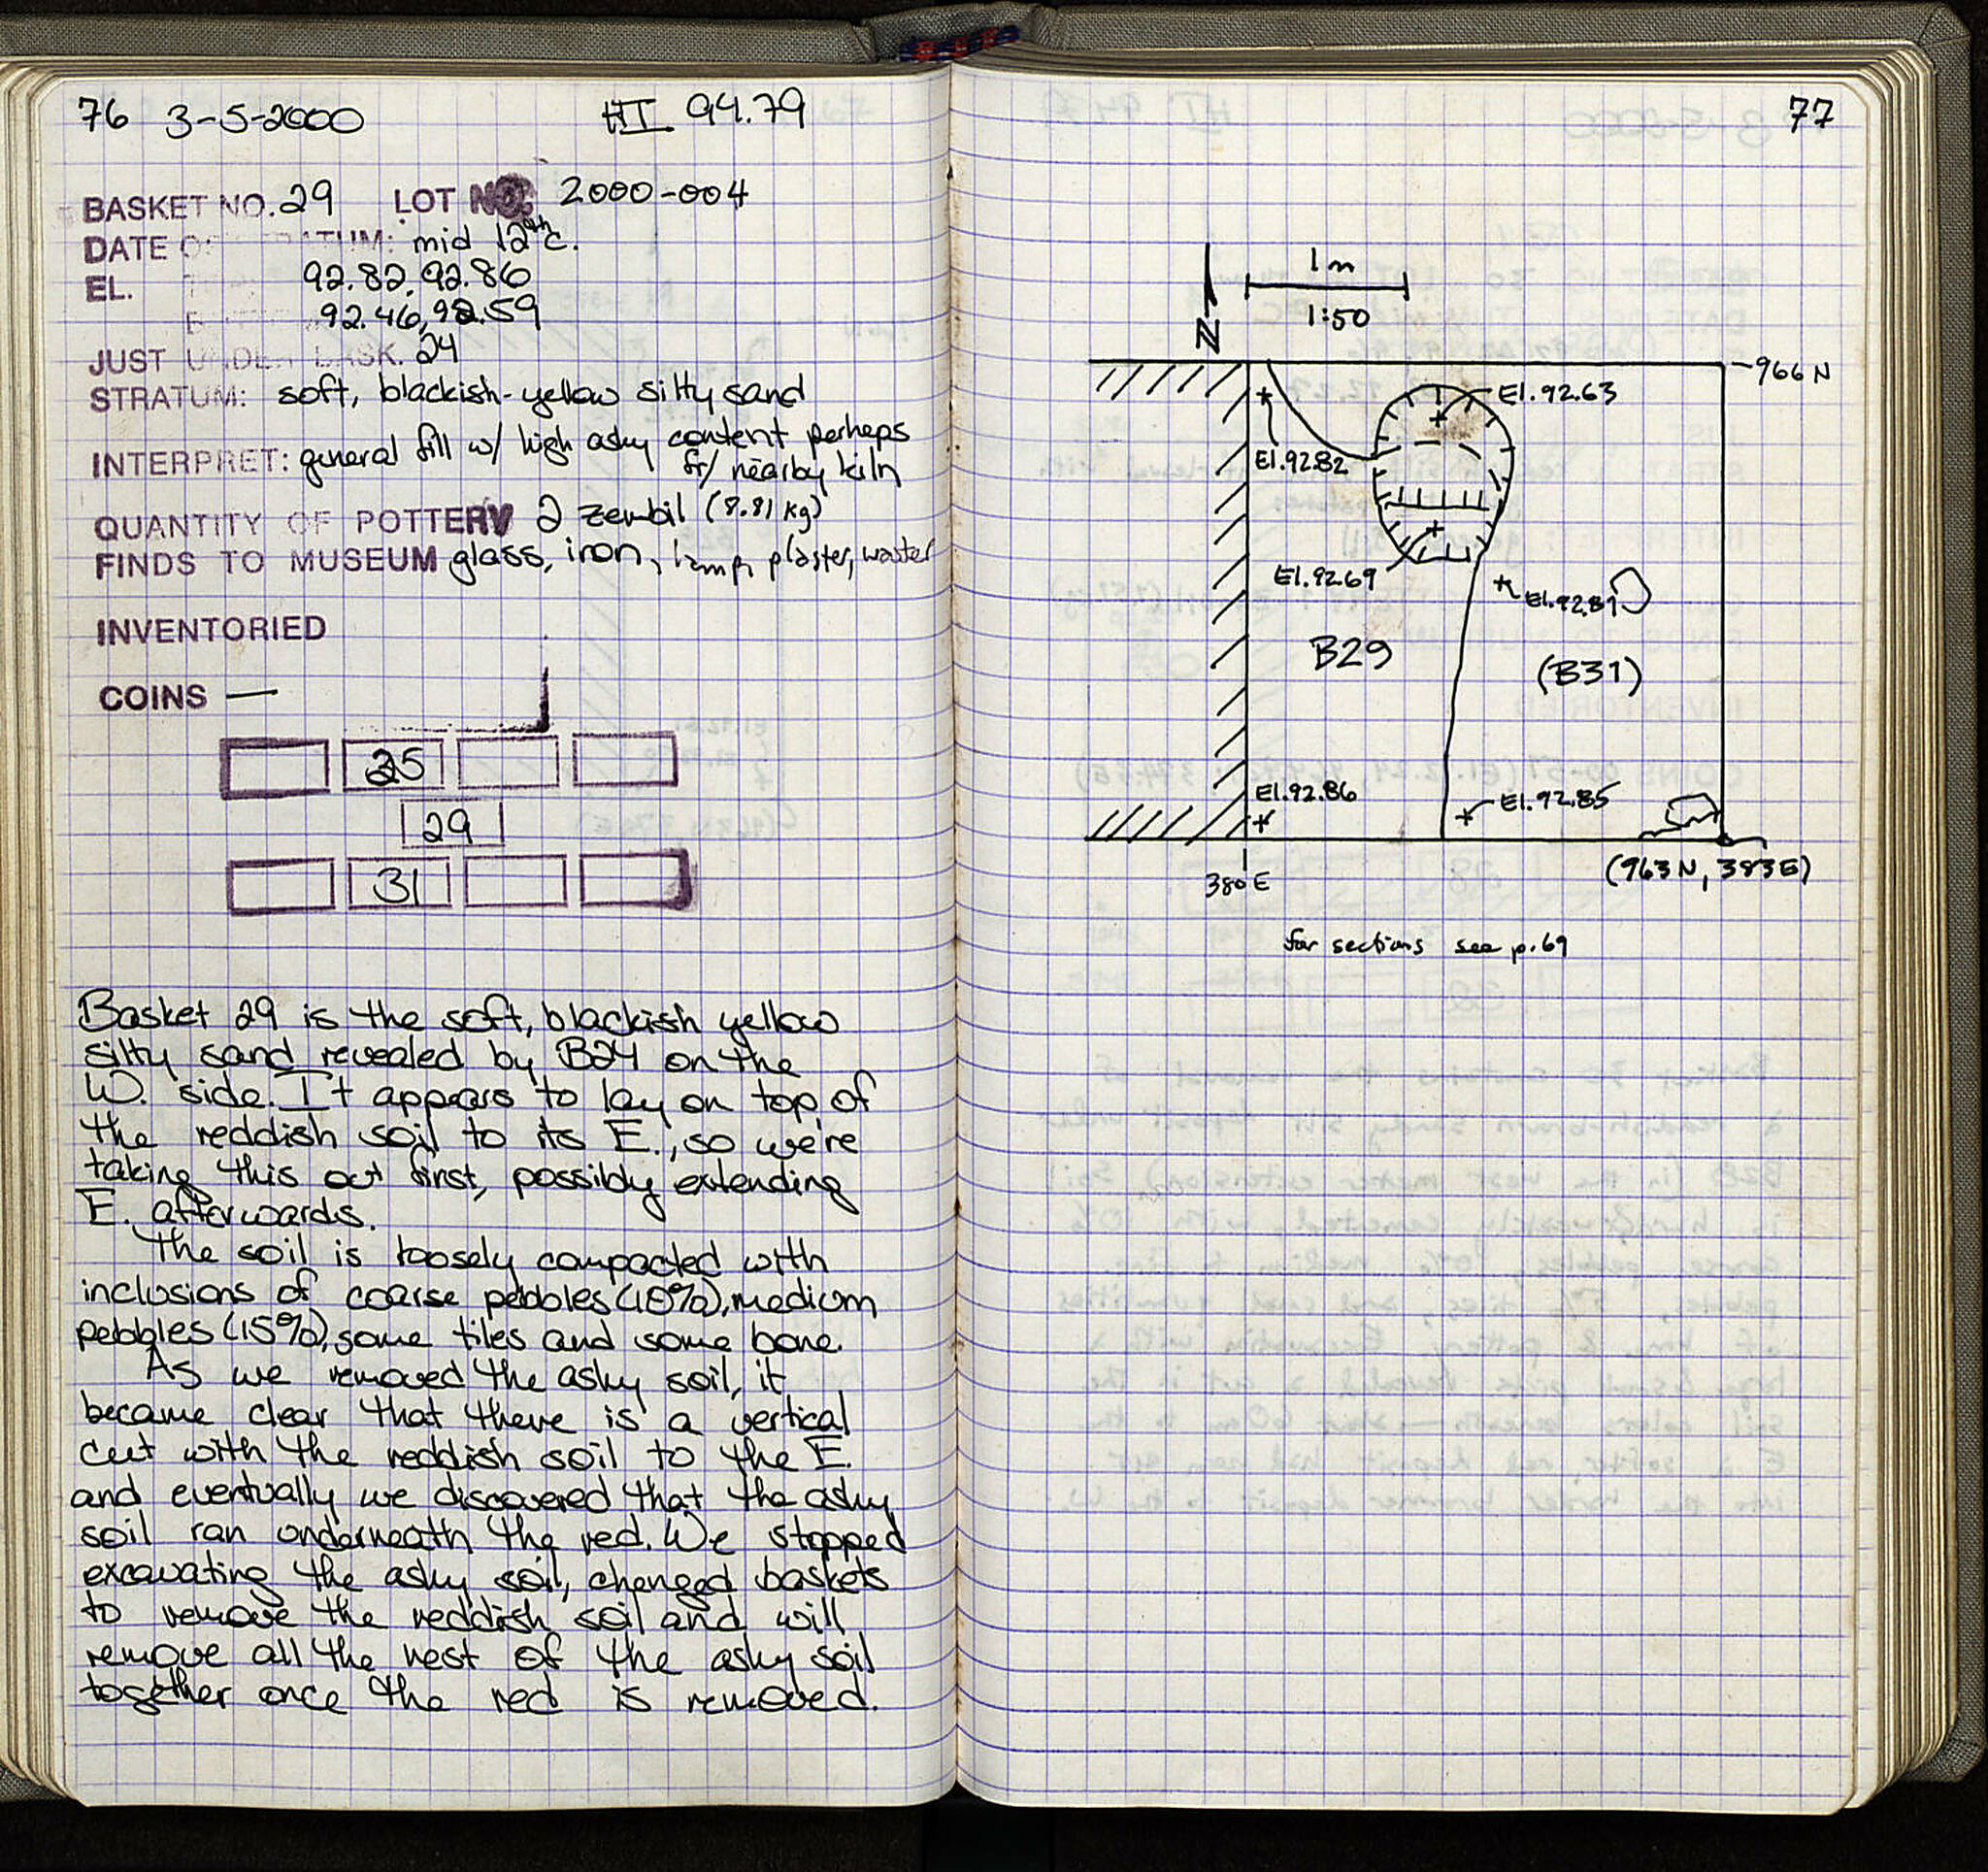 76 3-5-2000 HI 94.79
BASKET NO. 29 LOT NO. 2000-004
DATE OF STRATUM: mid 12th c.
EL. 92.82, 92.86
92.46, 92.59
JUST UNDER BASK. 24
STRATUM: soft, blackish-yellow silty sand
INTERPRET: general fill w/ high ashy content perhaps
fr/ nearby kiln
QUANTITY OF POTTERY 2 zembil (8.81 kg)
FINDS TO MUSEUM glass, iron, lamp, plaster, waster
INVENTORIED
COINS —
25
29
31
Basket 29 is the soft, blackish yellow
silty sand revealed by B24 on the
W. side. It appears to lay on top of
the reddish soil to its E., so we're
taking this out first, possibly extending
E. afterwards.
The soil is loosely compacted with
inclusions of coarse pebbles (10%), medium
pebbles (15%), some tiles and some bone.
As we removed the ashy soil, it
became clear that there is a vertical
cut with the reddish soil to the E.
and eventually we discovered that the ashy
soil ran underneath the red. We stopped
excavating the ashy soil, changed baskets
to remove the reddish soil and will
remove all the rest of the ashy soil
together once the red is removed.
77
1m
1:50
N
966 N
El. 92.63
El. 92.82
El. 92.69
El. 92.81
B29
(B31)
El. 92.86
El. 92.85
380 E
(963 N, 383 E)
for sections see p. 69